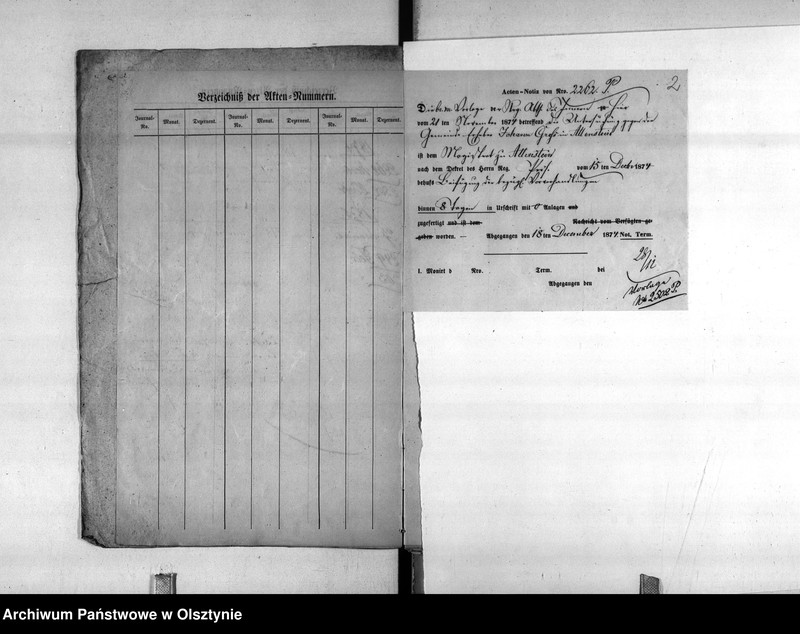 Verzeichniß der Akten-Nummern.
Journal-No. Monat. Dezernent. Journal-No. Monat. Dezernent. Journal-No. Monat. Dezernent.
2
Acten-Notiz von Nro. 2262. P.
Vorlage der Reg. Abth. des Innern hier
vom 21 ten November 1874 betreffend die Untersuchung gegen den
Johann in Allenstein
ist dem Magistrat zu Allenstein
nach dem Dekret des Herrn Reg. vom 15 ten Decbr 1874
behufs Beifügung der bezügl. Vorverhandlungen
binnen 8 Tagen in Urschrift mit 0 Anlagen und
zugefertigt und ist dem Nachricht vom Verfügten ge-
geben worden. — Abgegangen den 18 ten December 1874. Not. Term.
28/12
1. Monirt d Nro. Term. bei
Abgegangen den
Vorlage
No 2502 P.
Archiwum Państwowe w Olsztynie